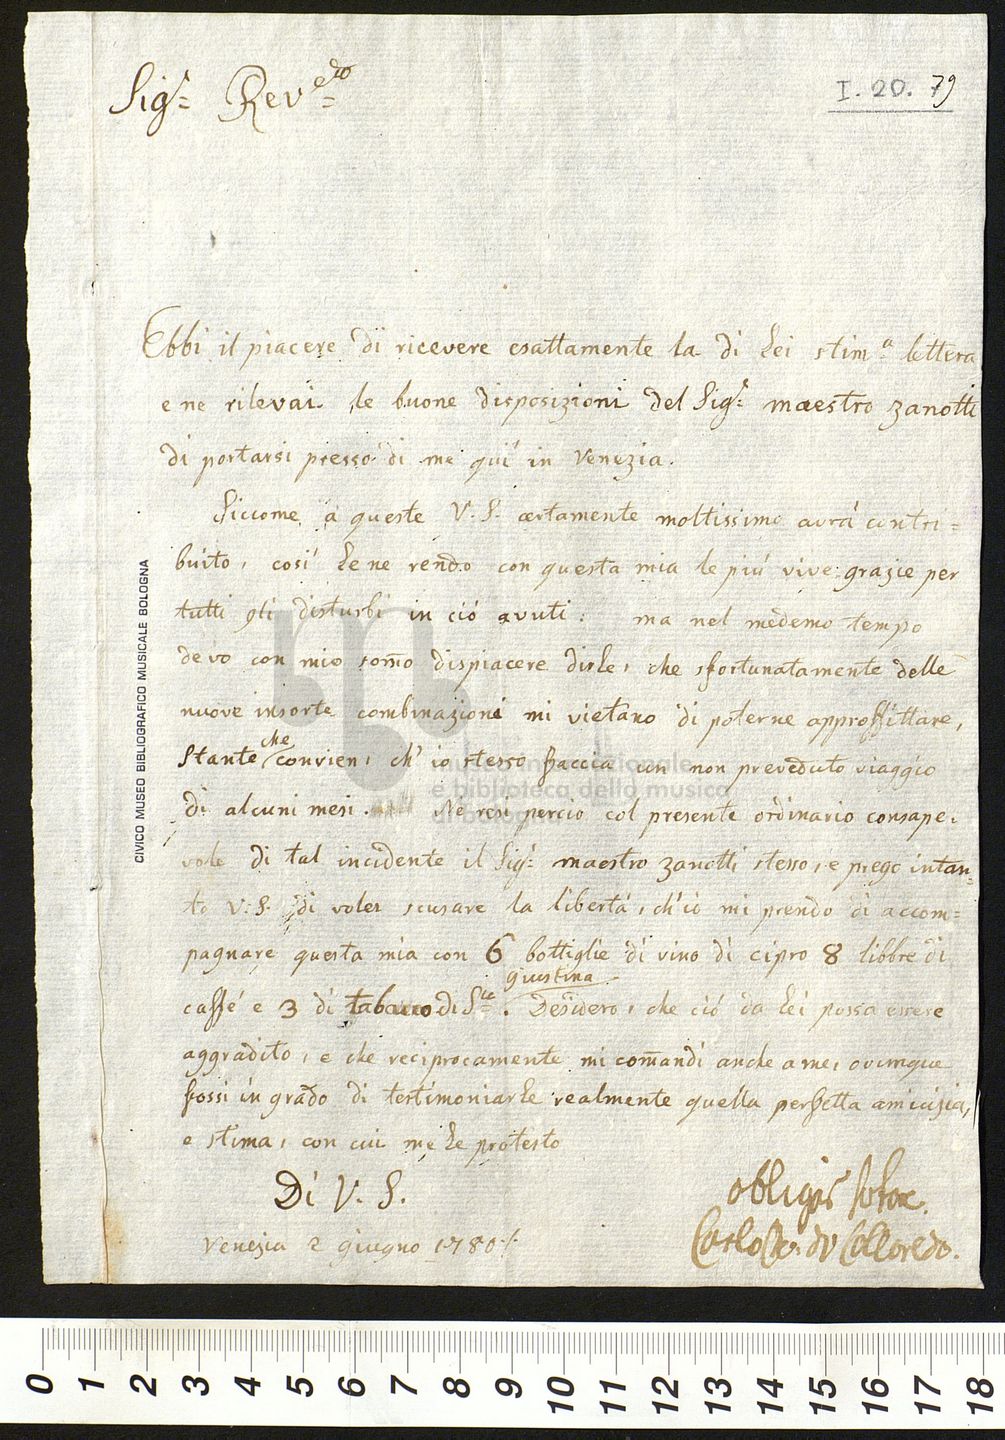 Sig.r Rev.edo
I. 20. 79
Ebbi il piacere di ricevere esattamente la di Lei stim.a lettera
e ne rilevai le buone disposizioni del Sig.r maestro Zanotti
di portarsi presso di me quì in Venezia.
Siccome à queste V. S. certamente moltissimo avrà contri=
buito, così Le ne rendo con questa mia le più vive grazie per
tutti gli disturbi in ciò avuti: ma nel medemo tempo
devo con mio som̃o dispiacere dirle, che sfortunatamente delle
nuove insorte combinazioni mi vietano di poterne approffittare,
Stante che convien, ch'io stesso faccia un non preveduto viaggio
di alcuni mesi. Ne resi perciò col presente ordinario consape=
vole di tal incidente il Sig.r maestro Zanotti stesso, e prego intan=
to V. S. di voler scusare la libertà, ch'io mi prendo di accom=
pagnare questa mia con 6 bottiglie di vino di cipro 8 libbre di
caffé e 3 di tabacco di S.ta Giustina. Desidero, che ciò da Lei possa essere
aggradito, e che reciprocamente mi com̃andi anche a me, ovunque
fossi in grado di testimoniarle realmente quella perfetta amicizia,
e stima, con cui me Le protesto
Di V. S.
Venezia 2 giugno 1780
Carlo di Colloredo.
CIVICO MUSEO BIBLIOGRAFICO MUSICALE BOLOGNA
museo internazionale
e biblioteca della musica
di bologna
0 1 2 3 4 5 6 7 8 9 10 11 12 13 14 15 16 17 18